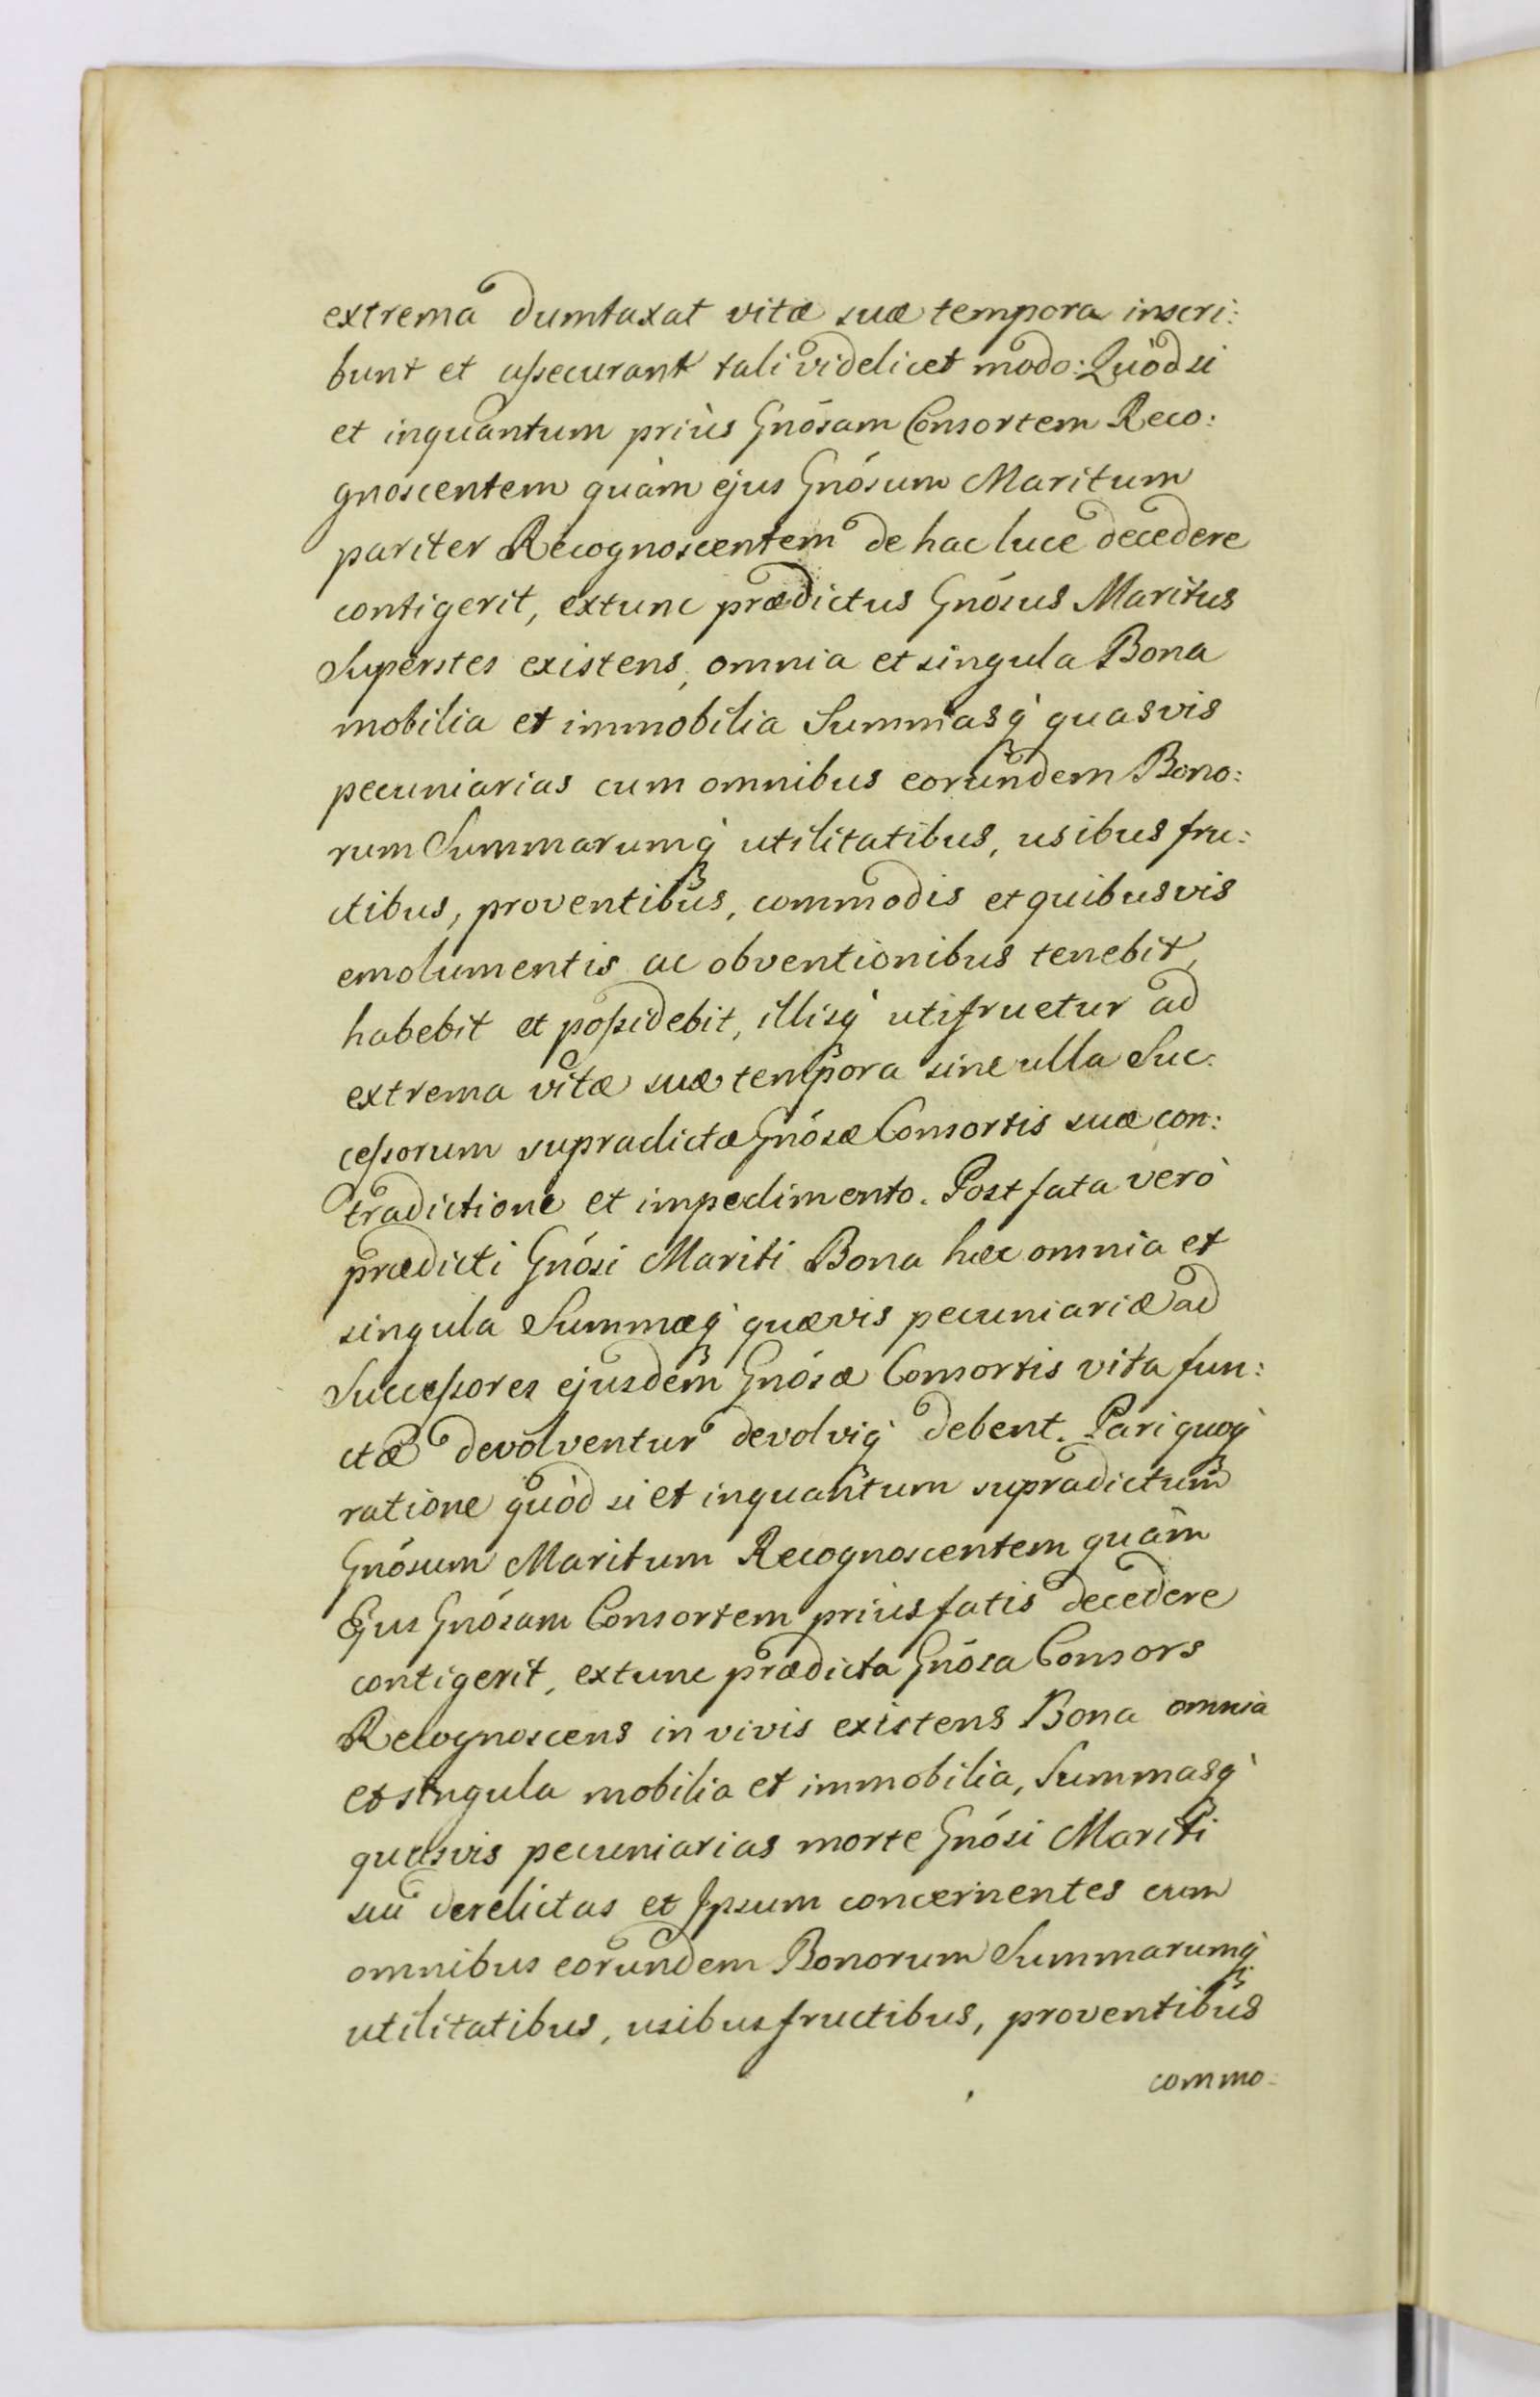 extrema dumtaxat vitæ suæ tempora inscri:
bunt et assecurant tali videlicet modo: Quòd si
et inquantum priùs Gnósam Consortem Reco:
gnoscentem quàm ejus Gnósum Maritum
pariter Recognoscentem de hac luce decedere
contigerit, extunc prædictus Gnósus Maritus
Superstes existens, omnia et singula Bona
mobilia et immobilia Summasq̀ quasvis
pecuniarias cum omnibus eorundem Bono:
rum Summarumq̀ utilitatibus, usibus fru:
ctibus, proventibus, commodis et quibusvis
emolumentis ac obventionibus tenebit,
habebit et possidebit, illisq̀ utifruetur ad
extrema vitæ suæ tempora sine ulla Suc:
cessorum supradictæ Gnósæ Consortis suæ con:
tradictione et impedimento. Post fata verò
prædicti Gnósi Mariti Bona hæc omnia et
singula Summæq̀ quævis pecuniariæ ad
Successores ejusdem Gnósæ Consortis vita fun:
ctæ devolventur devolviq̀ debent. Pari quoq̀
ratione quòd si et inquantum supradictum
Gnósum Maritum Recognoscentem quàm
Ejus Gnósam Consortem priùs fatis decedere
contigerit, extunc prædicta Gnósa Consors
Recognoscens in vivis existens Bona omnia
et singula mobilia et immobilia, Summasq̀
quasvis pecuniarias morte Gnósi Mariti
sui derelictas et Ipsum concernentes cum
omnibus eorundem Bonorum Summarumq̀
utilitatibus, usibusfructibus, proventibus
commo: